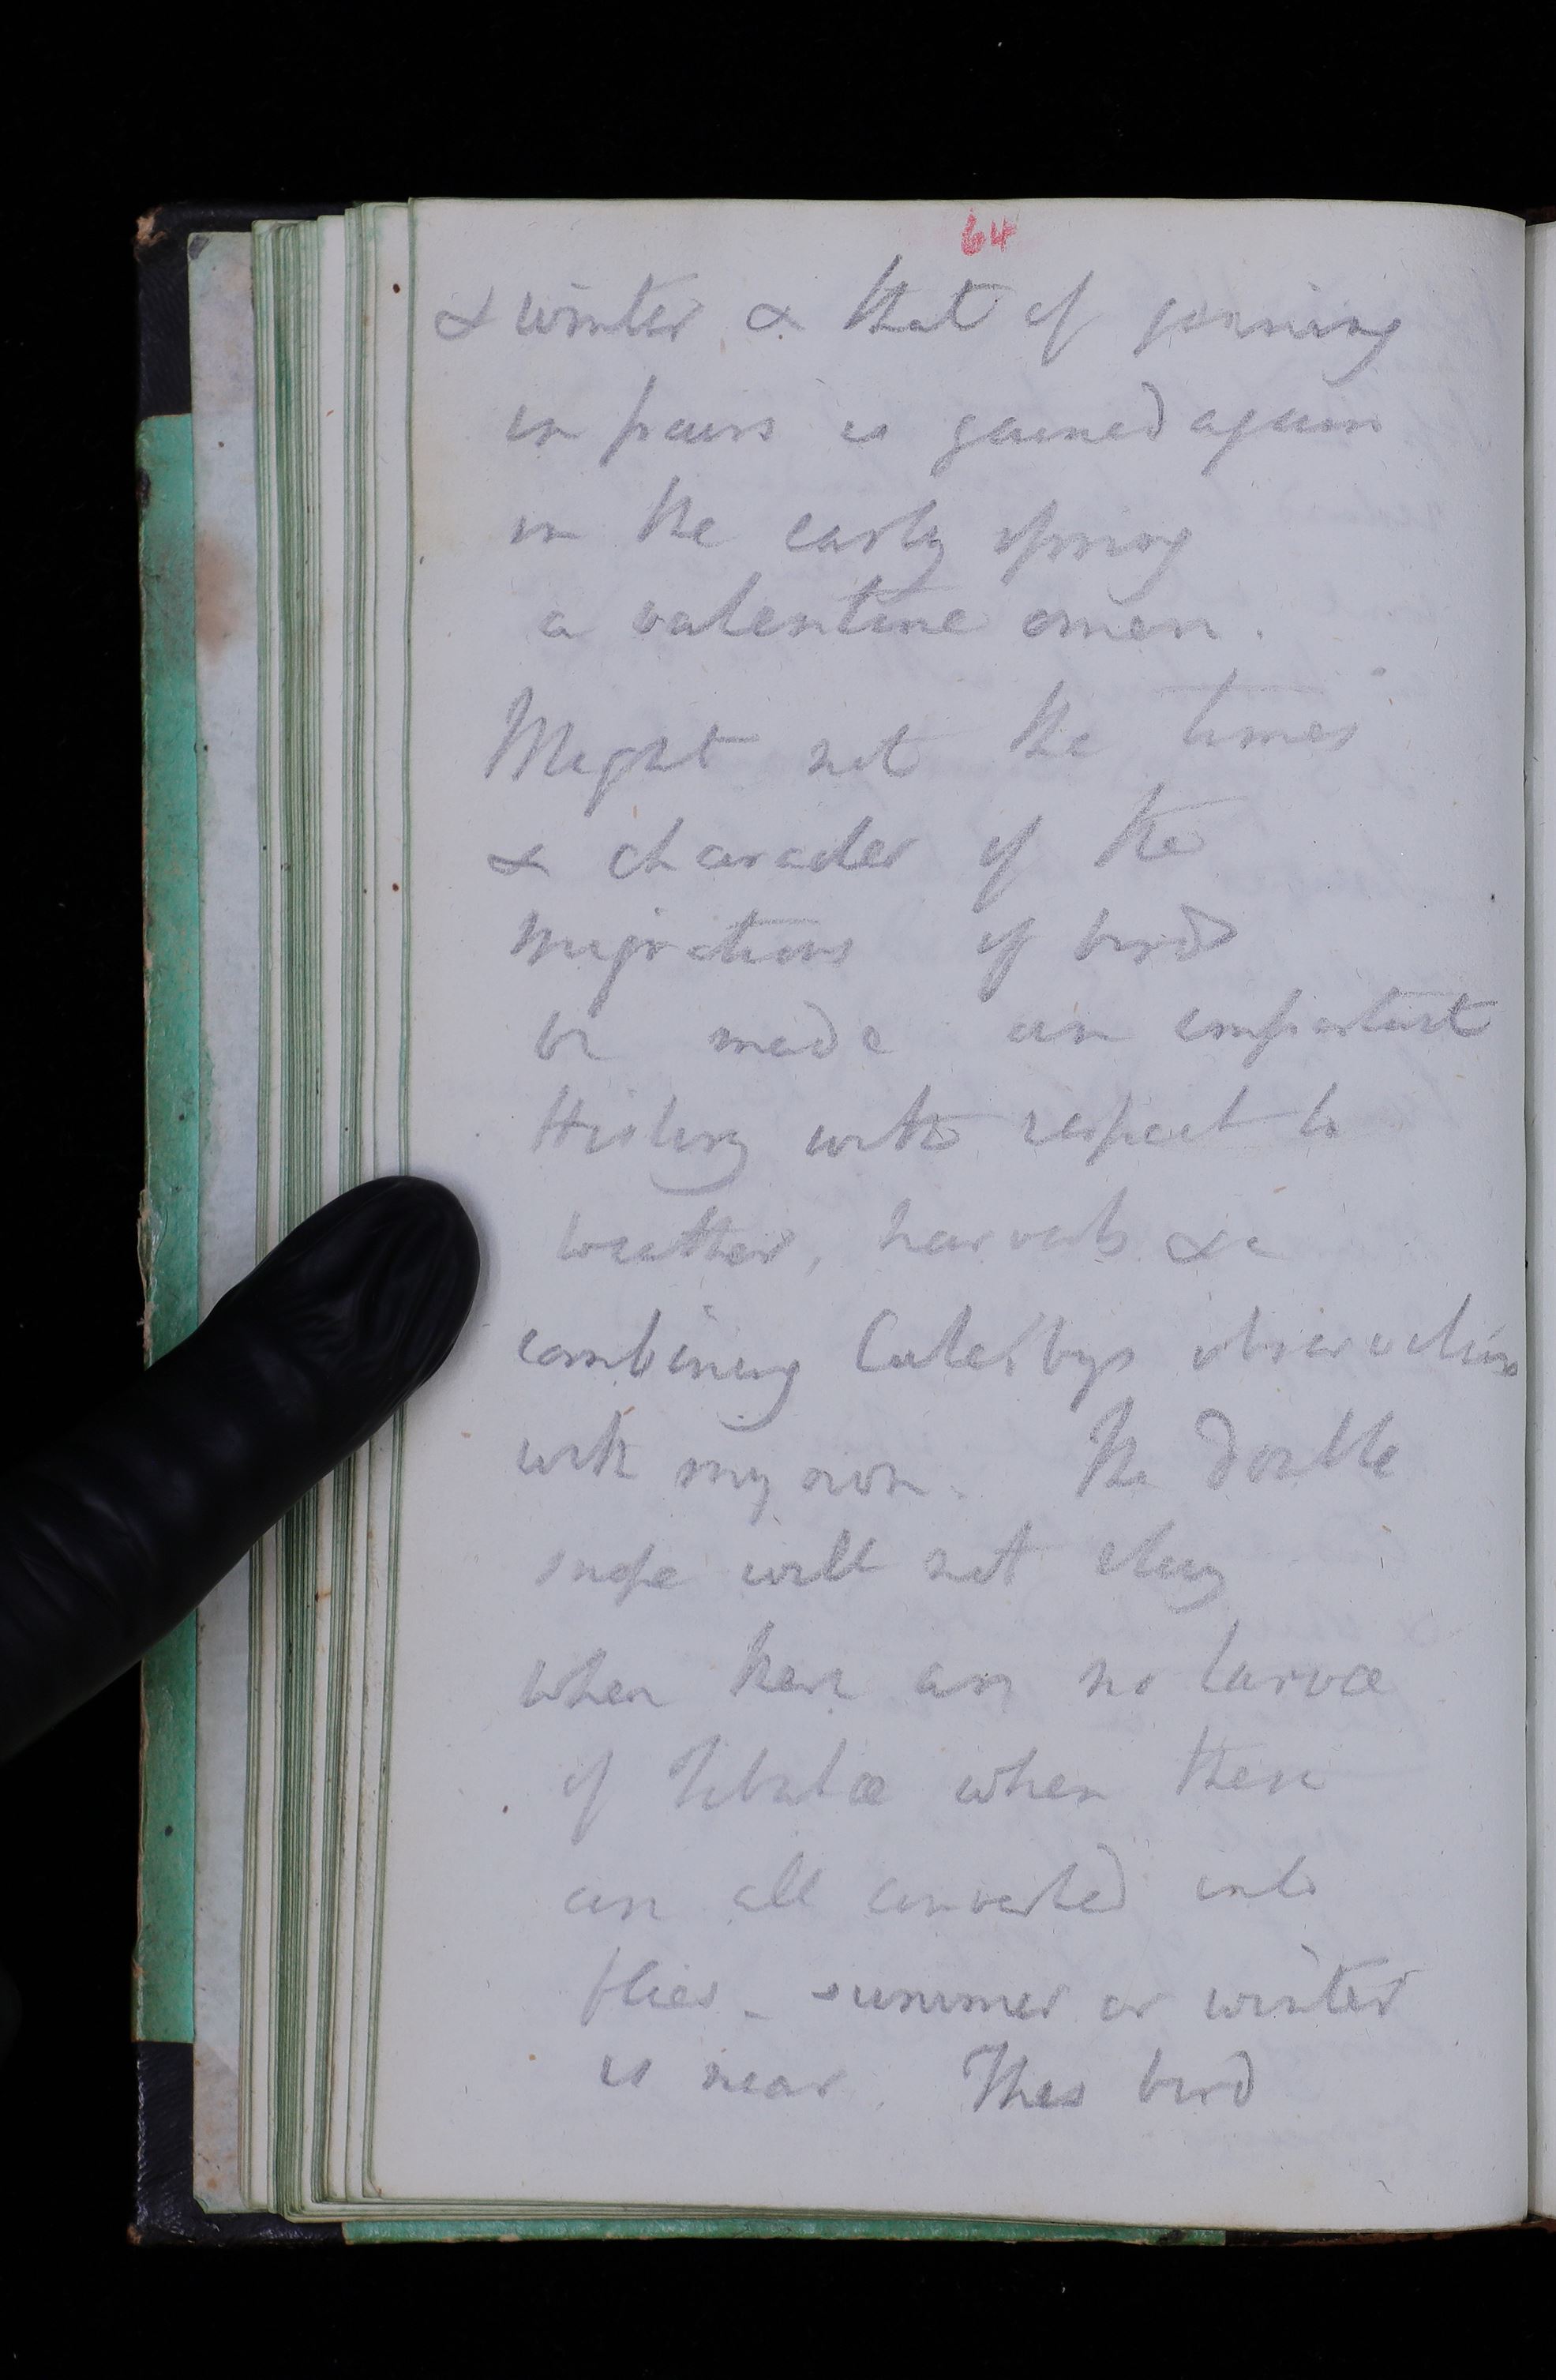 64
& winter & that of joining
in pairs is gained again
in the early spring
a valentine omen.
Might not the times
& character of the
migrations of birds
be made an important
History with respect to
weather, harvests &c
combining observations
with my own. The double
snipe will not stay
when there are no larvæ
of Tibulæ when these
are all converted into
flies - summer or winter
is near. This bird